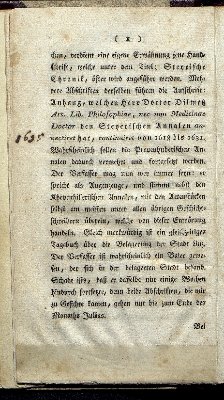 ( 2 )
chen, verdient eine eigene Erwähnung jene Hand-
schrift, welche unter dem Titel: Steyrische
Chronik, öfter wird angeführet werden. Meh-
rere Abschriften derselben führen die Aufschrift:
Anhang, welchen Herr Doctor Dilmetz
Art. Lib. Philosophiae, nec non Medicinae
Doctor den Steyrischen Annalen an-
notiret hat, continuiret von 1618 bis 1631.
1635
Wahrscheinlich sollen die Prevenhuberischen An-
nalen dadurch vermehrt und fortgesetzt werden.
Der Verfasser mag nun wer immer seyn: er
spricht als Augenzeuge, und stimmt nebst den
Khevenhillerischen Annalen, mit den
selbst am meisten unter allen übrigen Geschicht-
schreibern überein, welche von dieser Erwähnung
handeln. Gleich merkwürdig ist ein gleichzeitiges
Tagebuch über die Belagerung der Stadt Linz.
Der Verfasser ist wahrscheinlich ein Pater gewe-
sen, der sich in der belagerten Stadt befand.
Schade ists, daß er dasselbe nur einige Wochen
hindurch fortsetzte, denn beide Abschriften, die mir
zu Gesichte kamen, gehen nur bis zum Ende des
Monaths Julius.
Bei